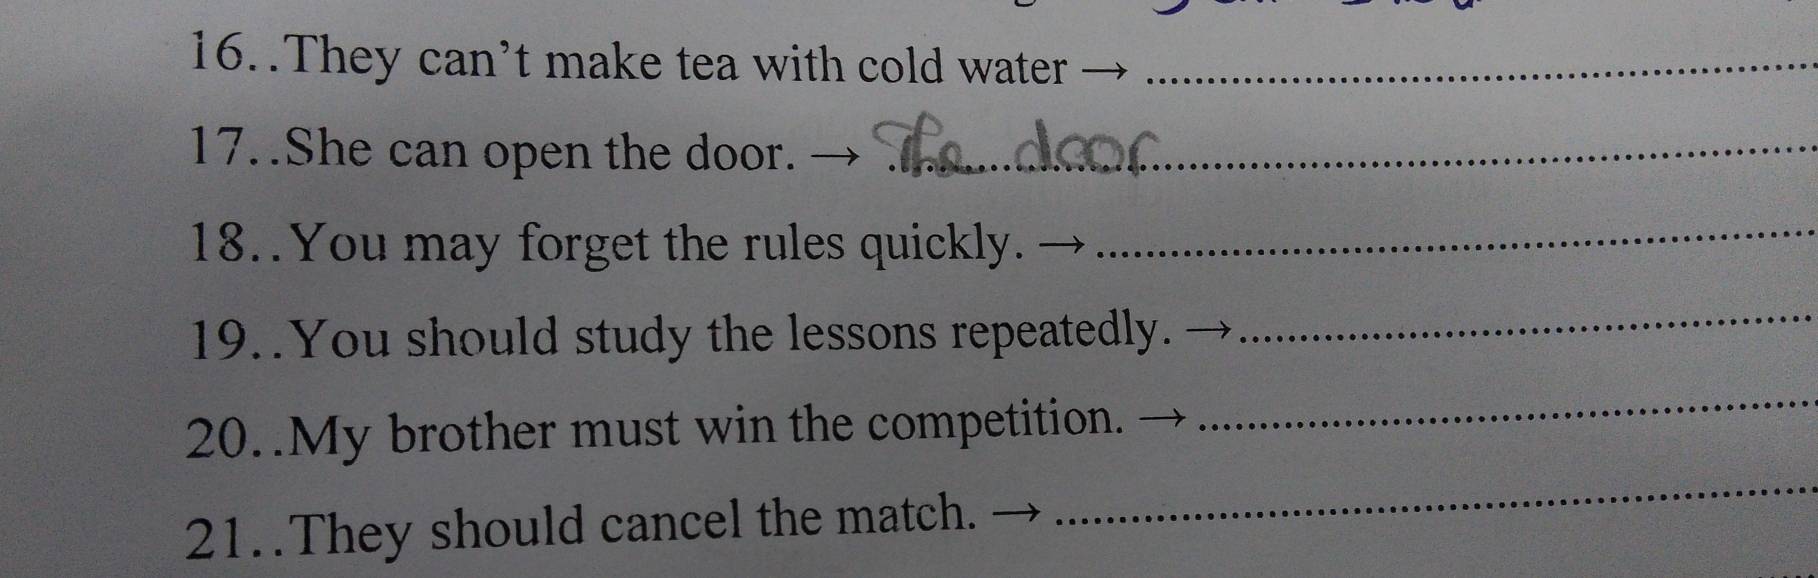 16..They can't make tea with cold water → ........................................................
17..She can open the door. → The door........................................................
18..You may forget the rules quickly. → ........................................................
19..You should study the lessons repeatedly. → ........................................................
20..My brother must win the competition. → ........................................................
21..They should cancel the match. → ........................................................